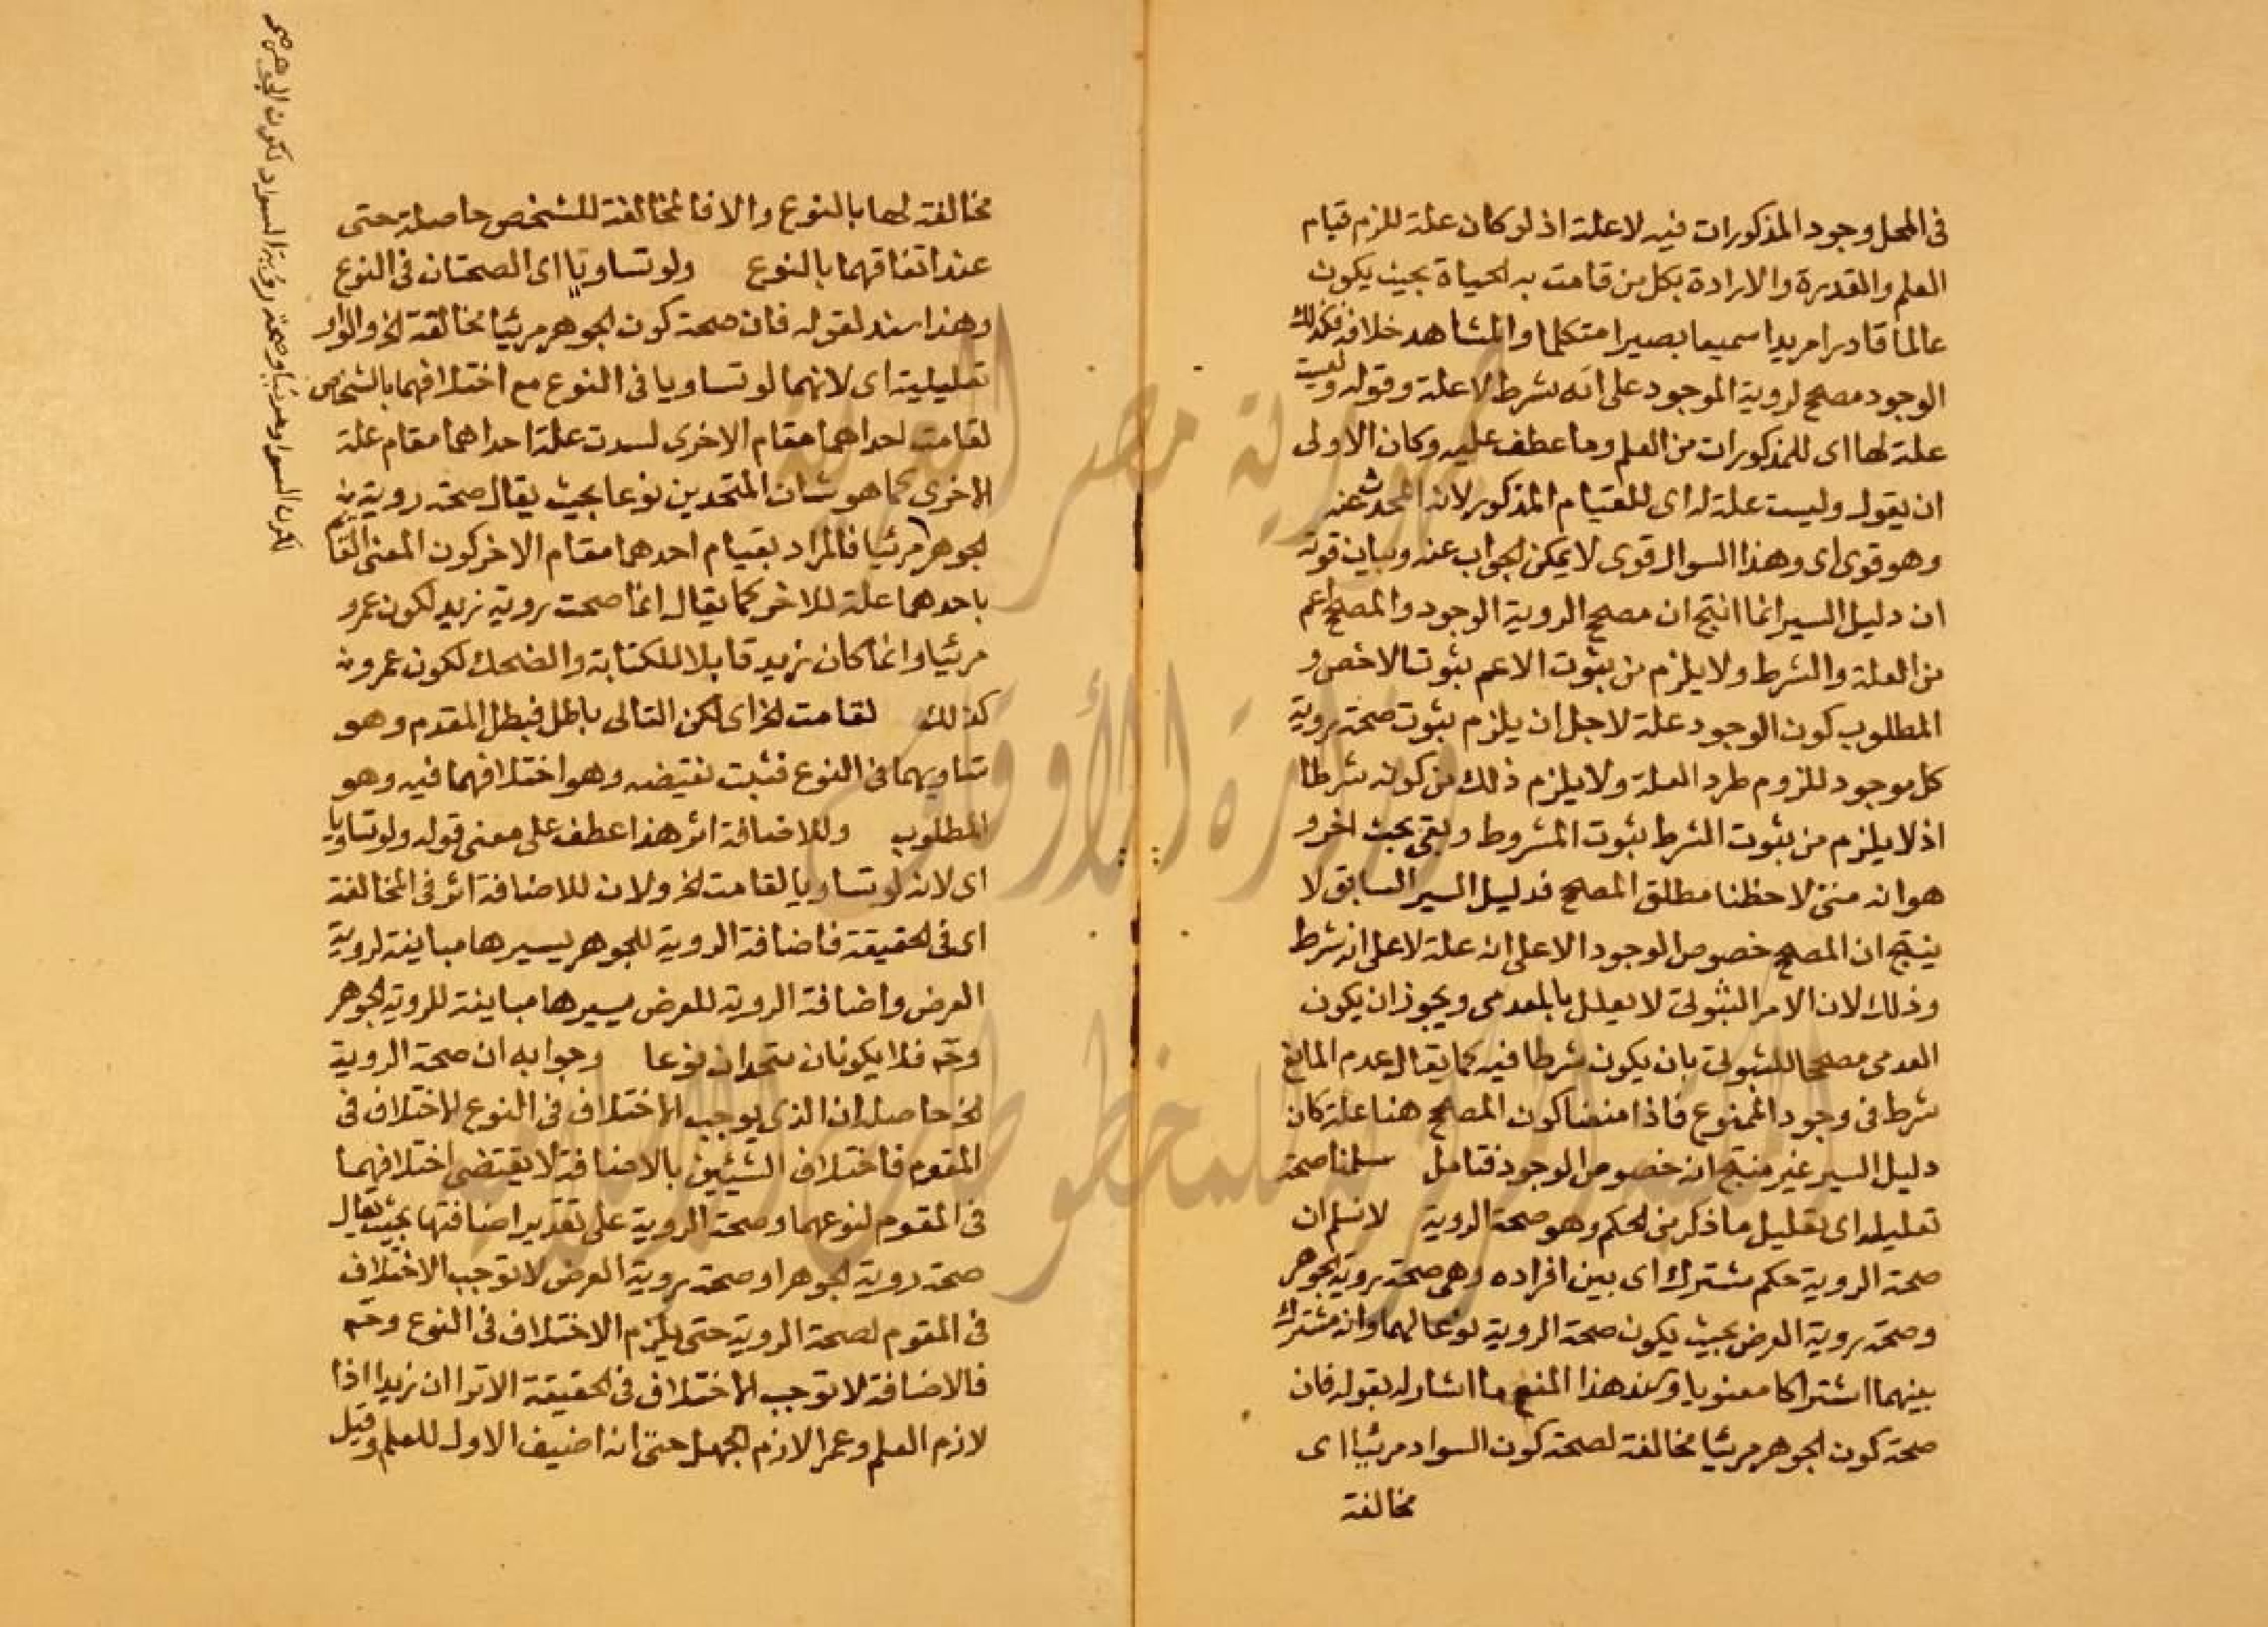 فى المحل وجود المذكورات فيه لا علة اذ لو كان علة للزم قيام
العلم والقدرة والارادة بكل من قامت به الحياة بحيث يكون
عالما قادرا مريدا سميعا بصيرا متكلما والمشاهد خلافه فكذلك
الوجود مصحح لروية الموجود على انه شرط لا علة وقوله وليست
علة لها اى للمذكورات من العلم وما عطف عليه وكان الاولى
ان يقول وليست علة له اى للقيام المذكور لانه المحدث عنه
وهو قوى اى وهذا السوال قوى لا يمكن الجواب عنه وبيان قوته
ان دليل السبر انما انتج ان مصحح الروية الوجود والمصحح اعم
من العلة والشرط ولا يلزم من ثبوت الاعم ثبوت الاخص و
المطلوب كون الوجود علة لاجل ان يلزم ثبوت صحة روية
كل موجود للزوم طرد العلة ولا يلزم ذلك من كونه شرطا
اذ لا يلزم من ثبوت الشرط ثبوت المشروط وبقى بحث اخر و
هو انه متى لاحظنا مطلق المصحح فدليل السبر السابق لا
ينتج ان المصحح خصوص الوجود الا على انه علة لا على انه شرط
وذلك لان الامر الثبوتى لا يعلل بالعدمى ويجوز ان يكون
العدمى مصححا للثبوتى بان يكون شرطا فيه كما يقال عدم المانع
شرط فى وجود الممنوع فاذا منعنا كون المصحح هنا علة كان
دليل السبر غير منتج انه خصوص الوجود فتامل سلمنا صحة
تعليله اى تعليل ما ذكر من الحكم وهو صحة الروية لا نسلم ان
صحة الروية حكم مشترك اى بين افراده وهى صحة روية الجوهر
وصحة روية العرض بحيث يكون صحة الروية نوعا لهما وانه مشترك
بينهما اشتراكا معنويا وسند هذا المنع ما اشار له بقوله فان
صحة كون الجوهر مرئيا مخالفة لصحة كون السواد مرئيا اى
مخالفة
مخالفة لها بالنوع والا فالمخالفة للشخص حاصلة حتى
عند اتفاقهما بالنوع ولو تساويا اى الصحتان فى النوع
وهذا سند لقوله فان صحة كون الجوهر مرئيا مخالفة الخ والواو
تعليلية اى لانهما لو تساويا فى النوع مع اختلافهما بالشخص
لقامت احداهما مقام الاخرى لسدت علة احداهما مقام علة
الاخرى كما هو شان المتحدين نوعا بحيث يقال صحة روية
الجوهر مرئيا فالمراد بقيام احدهما مقام الاخر كون المعنى القائم
باحدهما علة للاخر كما يقال انما صحت روية زيد لكون عمرو
مرئيا وانما كان زيد قابلا للكتابة والضحك لكون عمرو
كذلك لقامت الخ اى لكن التالى باطل فبطل المقدم وهو
تساويهما فى النوع فثبت نقيضه وهو اختلافهما فيه وهو
المطلوب وللاضافة اثر هذا عطف على معنى قوله ولو تساويا
اى لانه لو تساويا لقامت الخ ولان للاضافة اثر فى المخالفة
اى فى الحقيقة فاضافة الروية للجوهر يسيرها مباينة لروية
العرض واضافة الروية للعرض يسيرها مباينة للروية الجوهر
وح فلا يكونان متحدان نوعا وجوابه ان صحة الروية
الخ حاصله ان الذى يوجب الاختلاف فى النوع الاختلاف فى
المقوم فاختلاف الشيئين بالاضافة لا يقتضى اختلافهما
فى المقوم لنوعهما وصحة الروية على تقدير اضافتها بحيث يقال
صحة روية الجوهر او صحة روية العرض لا توجب الاختلاف
فى المقوم لصحة الروية حتى يلزم الاختلاف فى النوع وح
فالاضافة لا توجب الاختلاف فى الحقيقة الا ترا ان زيدا اذا
لازم العلم وعمرا لازم الجهل حتى انه اضيف الاول للعلم وقيل
لكون السواد مرئيا وصحة رؤية السواد لكون الجوهر